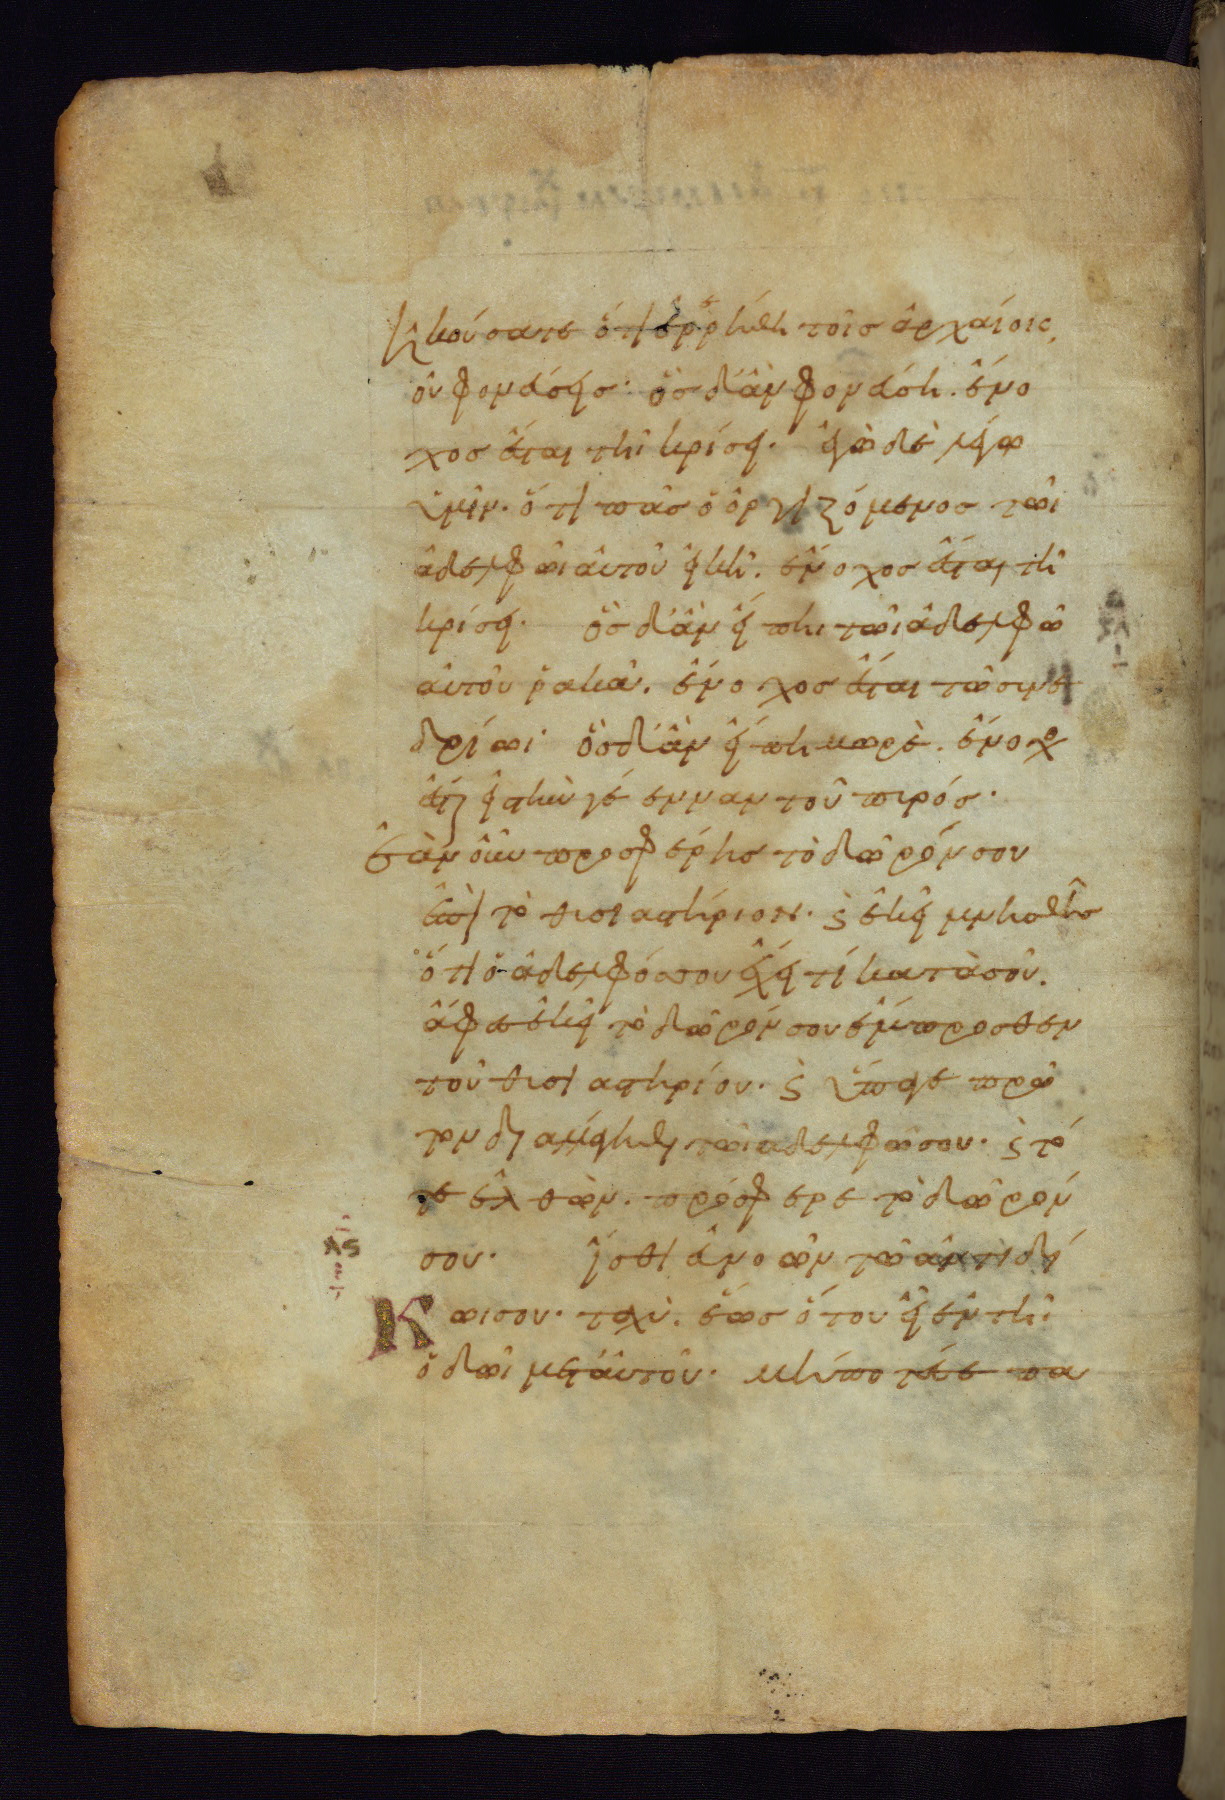 Ἠκούσατε ὅτι ἐρρήθη τοῖσ ἀρχαίοις,
οὐ φονεύσεισ· ὃσ δ' ἂν φονεύση. ἔνο
χοσ ἔσται τῆ κρίσει· ἐγὼ δὲ λέγω
ὑμῖν. ὅτι πᾶσ ὁ ὀργιζόμενοσ τῶι
ἀδελφῶι αὐτοῦ εἰκῆ. ἔνοχοσ ἔσται τῆ
κρίσει· ὃσ δ' ἂν εἴπηι τῶι ἀδελφῶ
αὐτοῦ ῥακά. ἔνοχοσ ἔσται τῶ συνε
δρίωι· ὃσ δ' ἂν εἴπη μωρέ. ἔνοχο
ἔσται εἰσ τὴν γέενναν τοῦ πυρόσ·
Ἐὰν οὖν προσφέρησ τὸ δῶρόν σου
ἐπὶ τὸ θυσιαστήριον· ϛ ἐκεῖ μνησθῆσ
ὅτι ὁ ἀδελφόσ σου ἔχει τί κατὰ σοῦ.
ἄφεσ ἐκεῖ τὸ δῶρόν σου ἔμπροσθεν
τοῦ θυσιαστηρίου. ϛ ὕπαγε πρῶ
τον διαλλάγηθι τῶι ἀδελφῶ σου· ϛ τό
τε ἐλθὼν. πρόσφερε τὸ δῶρόν
σου· ἴσθι εὐνοῶν τῶ ἀντιδί
κωι σου· ταχὺ. ἕωσ ὅτου εἶ ἐν τῆ
ὁδῶι μετ' αὐτοῦ· μήποτέ σε πα